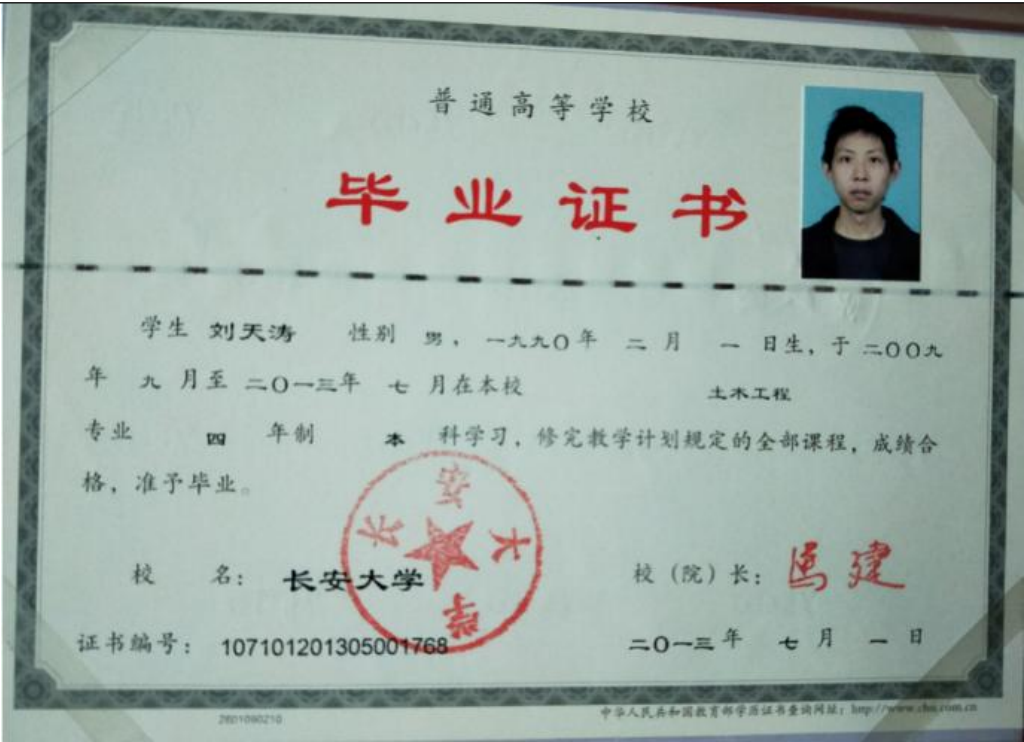 普通高等学校
毕业证书
学生 刘天涛 性别 男，一九九〇年 二 月 一 日生，于二〇〇九
年 九 月至 二〇一三年 七 月在本校 土木工程
专业 四 年制 本 科学习，修完教学计划规定的全部课程，成绩合
格，准予毕业。
长安大学
校 名：长安大学 校（院）长：马建
证书编号：107101201305001768 二〇一三年 七 月 一 日
2601090210 中华人民共和国教育部学历证书查询网址：http://www.chsi.com.cn